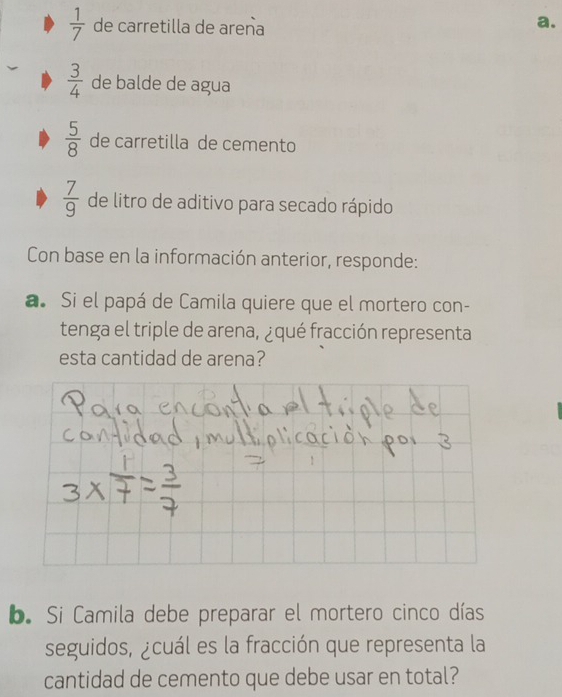 1/7 de carretilla de arena
a.
3/4 de balde de agua
5/8 de carretilla de cemento
7/9 de litro de aditivo para secado rápido
Con base en la información anterior, responde:
a. Si el papá de Camila quiere que el mortero con-
tenga el triple de arena, ¿qué fracción representa
esta cantidad de arena?
Para encontra el triple de
cantidad, multiplicación por 3
3 × 1/7 = 3/7
b. Si Camila debe preparar el mortero cinco días
seguidos, ¿cuál es la fracción que representa la
cantidad de cemento que debe usar en total?